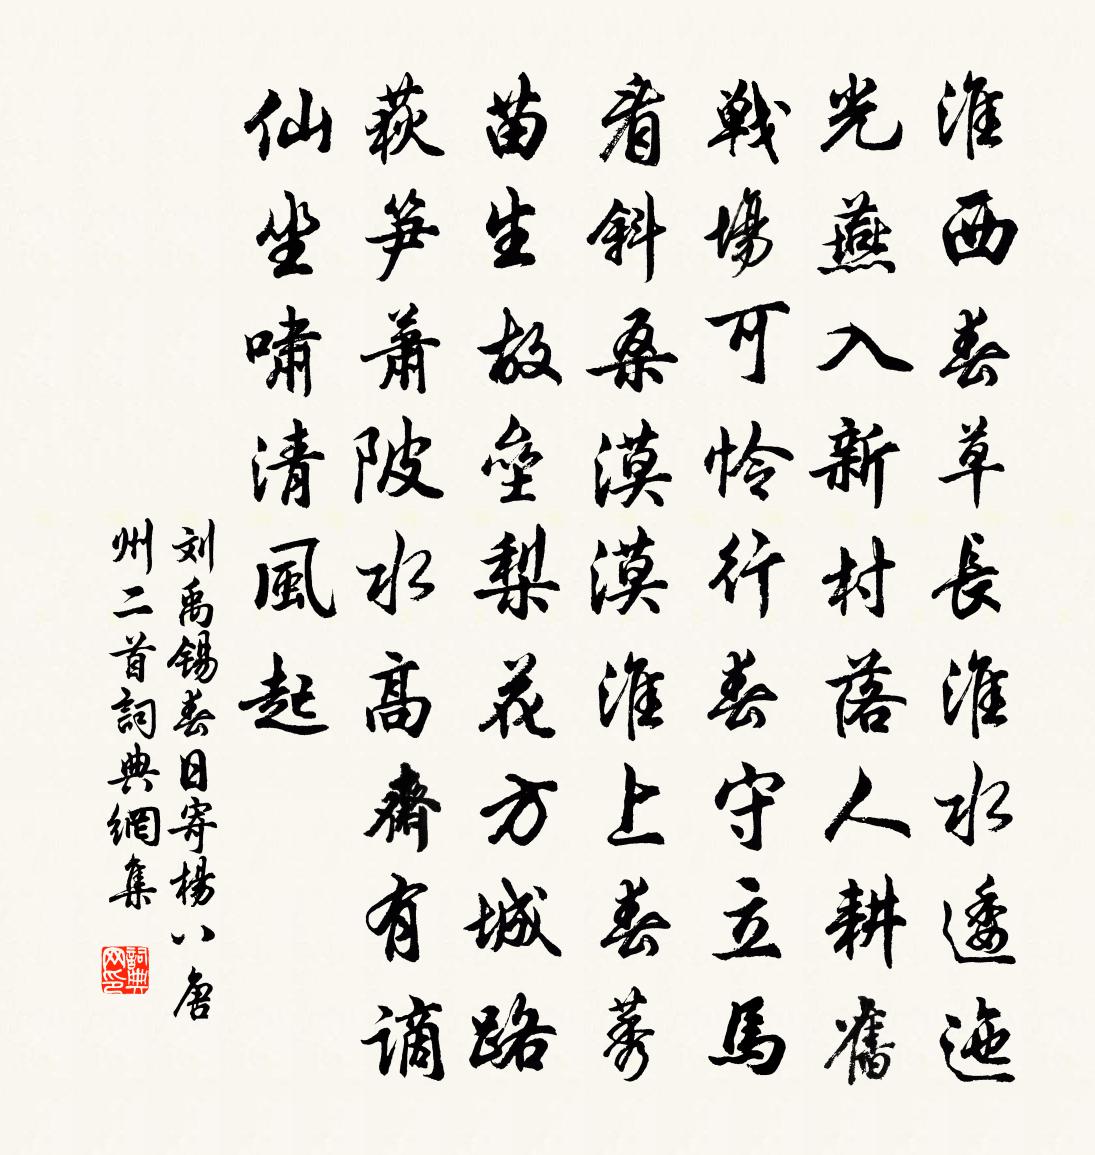 淮西春草長淮水逶迤
光燕入新村落人耕舊
戰場可怜行春守立馬
看斜桑漠漠淮上春莠
苗生故壘梨花方城路
荻笋蕭陂水高齋有謫
仙坐嘯清風起
刘禹錫春日寄楊八唐
州二首詞典網集
詞典网印